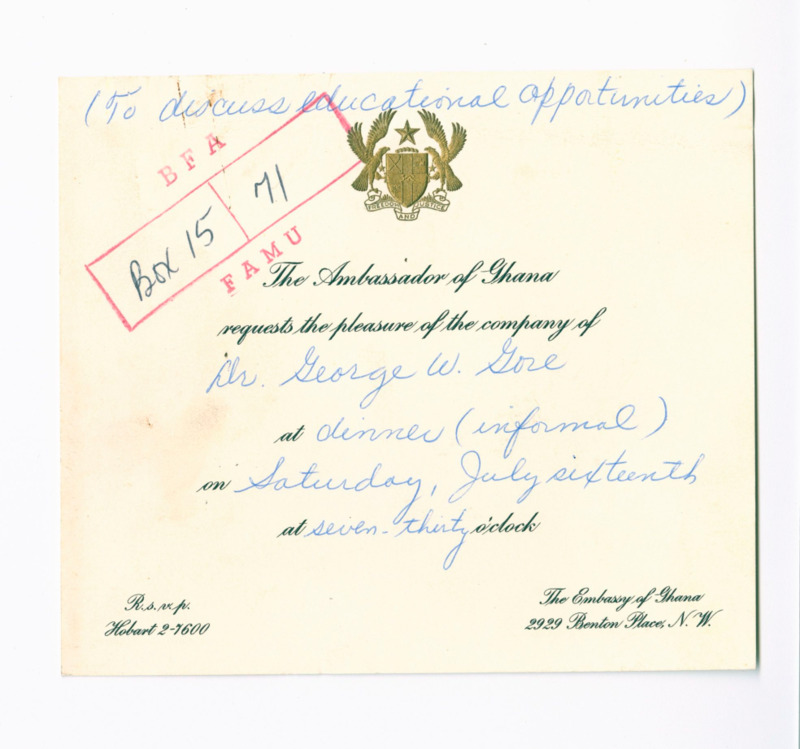 (To discuss educational opportunities)
BFA
Box 15
71
FAMU
FREEDOM AND JUSTICE
The Ambassador of Ghana
requests the pleasure of the company of
Dr. George W. Gore
at dinner (informal)
on Saturday, July sixteenth
at seven-thirty o'clock
R.s.v.p.
Hobart 2-7600
The Embassy of Ghana
2929 Benton Place, N.W.